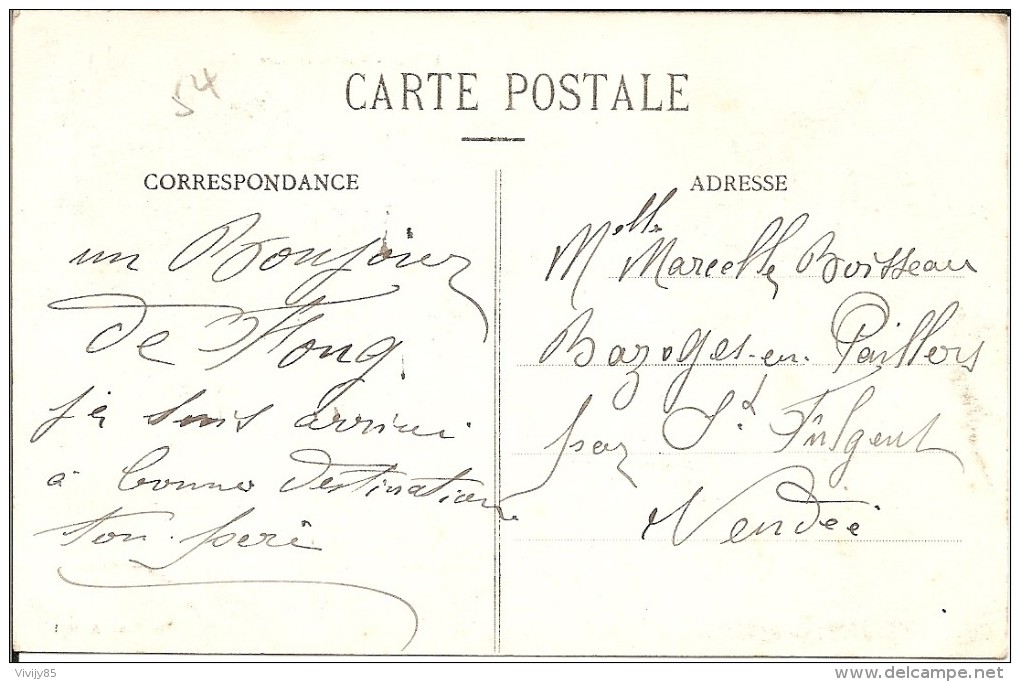 54
CARTE POSTALE
CORRESPONDANCE
un Boujour
de Houg.
je suis arrivé
à bonne destination
ton père
ADRESSE
Melle Marcelle Boisseau
Bazoges-en-Paillers
par St. Fulgent
Vendée
Vivijy85
www.delcampe.net